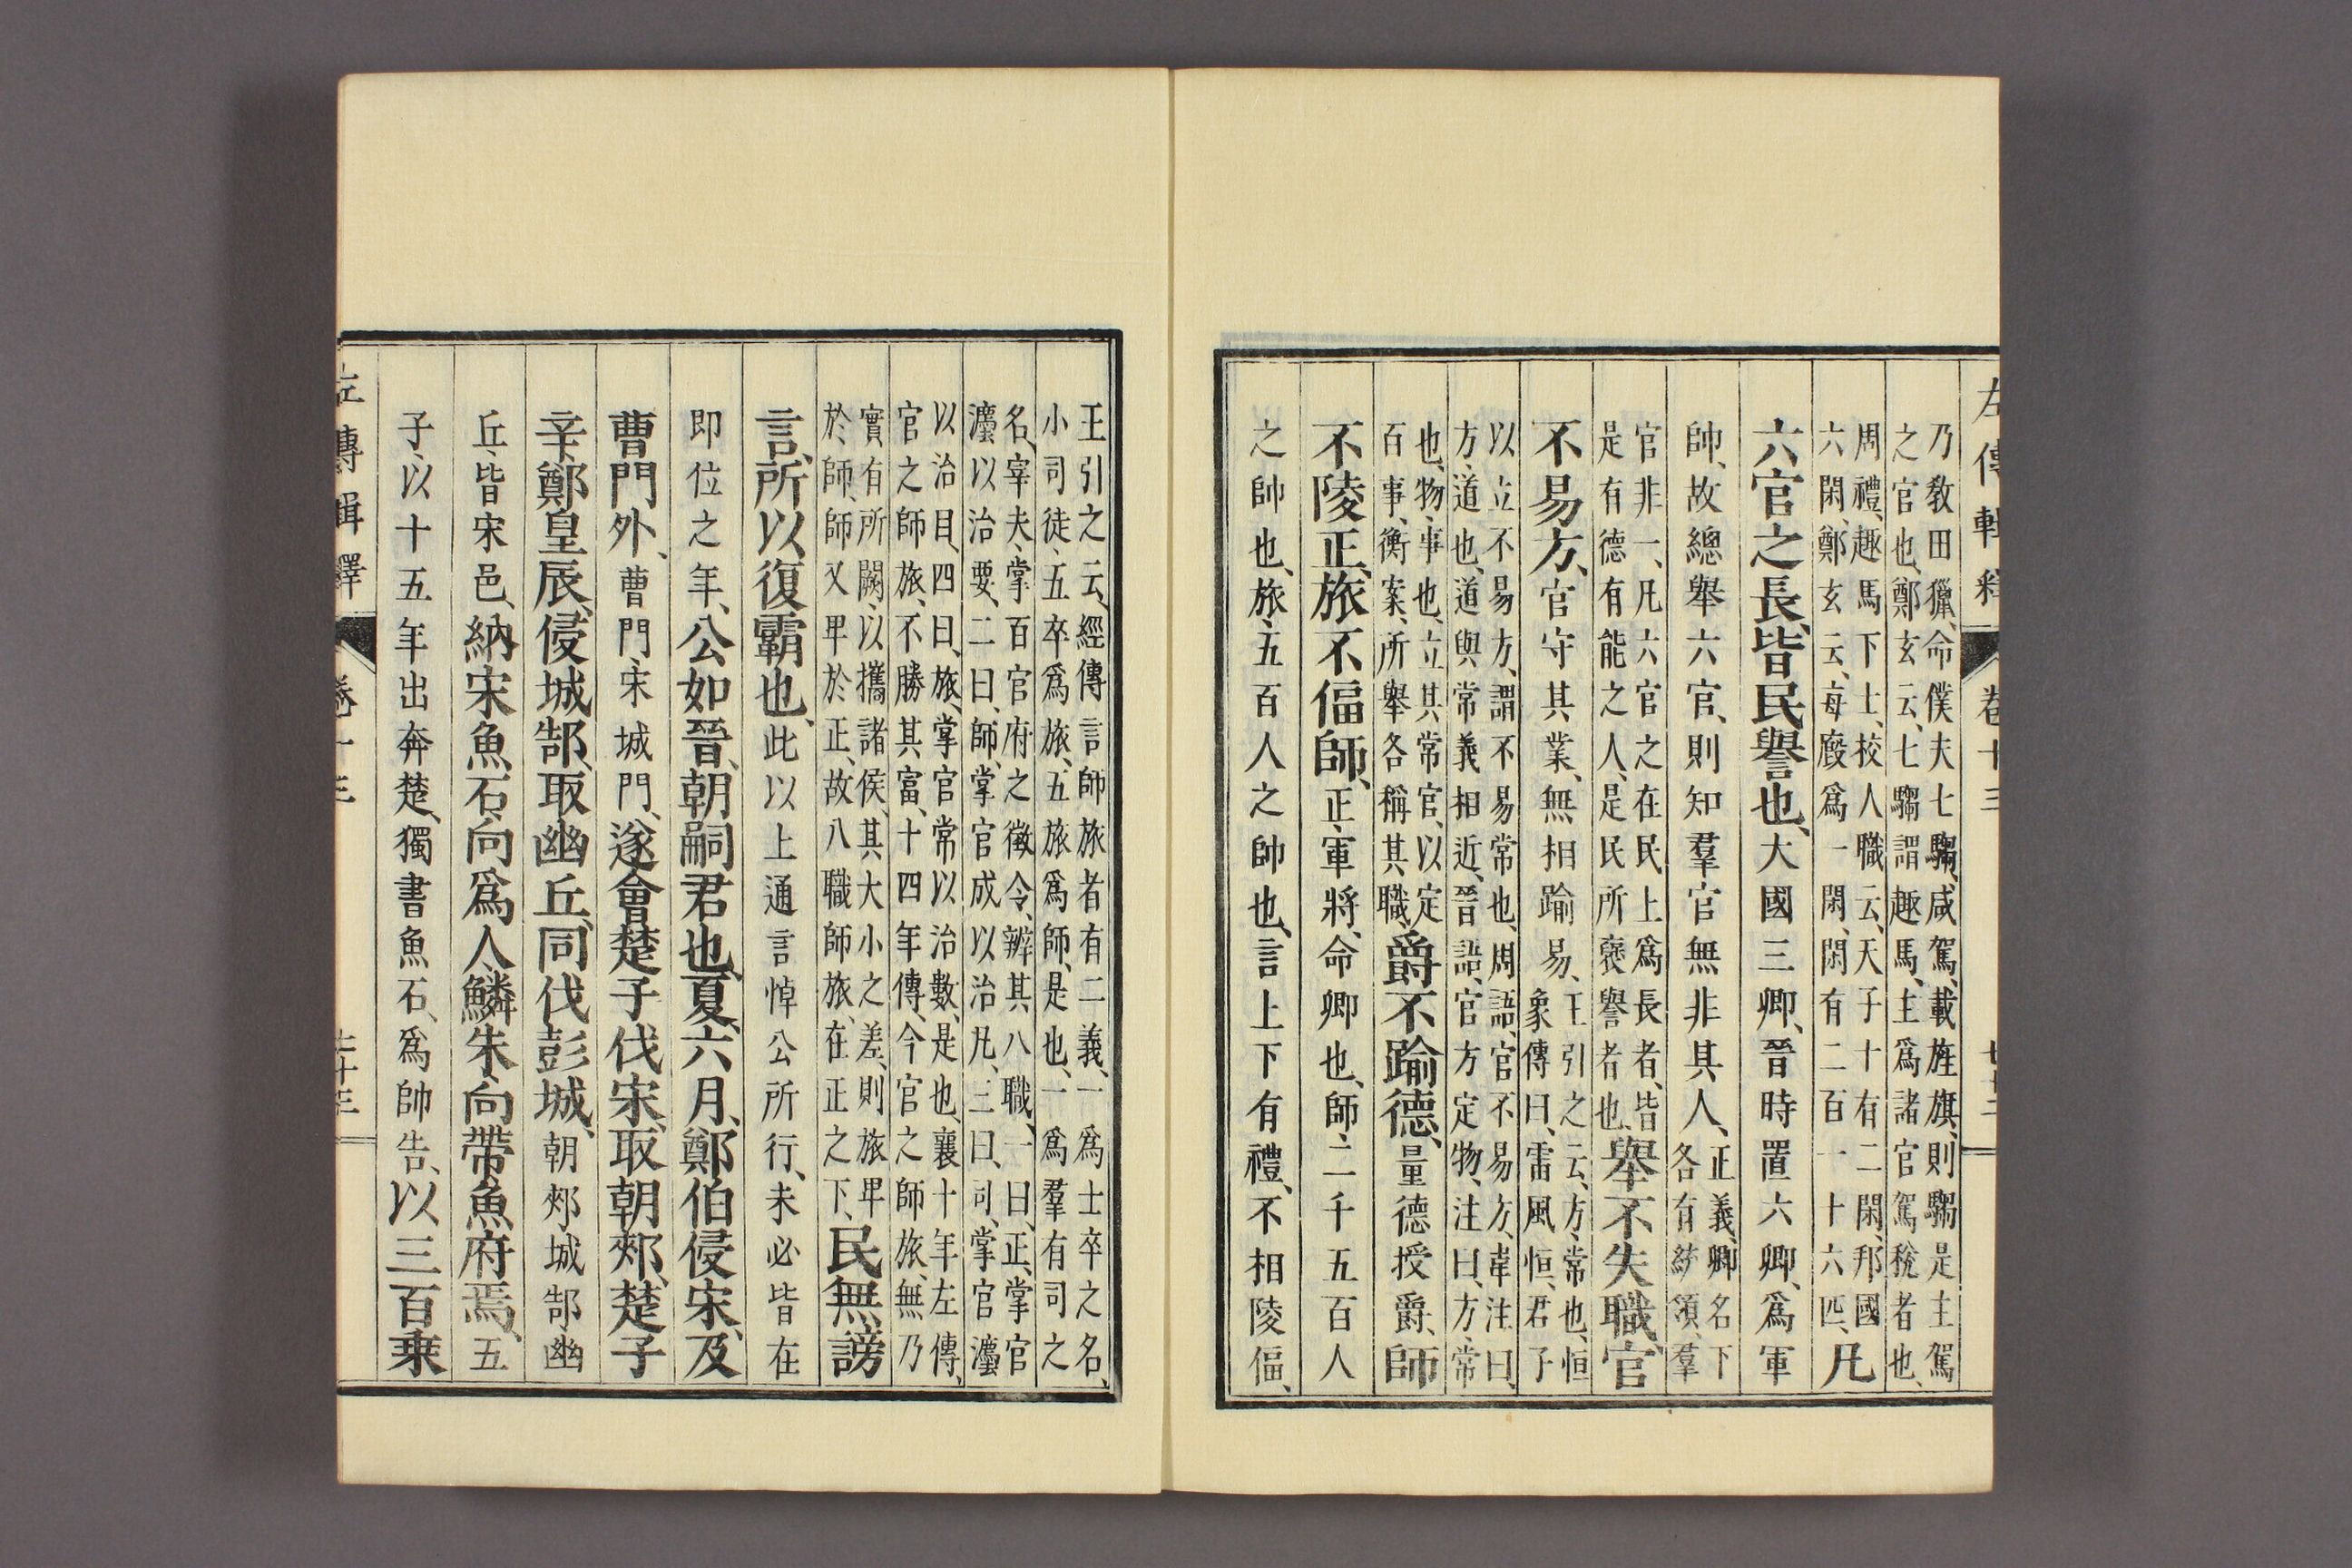 左傳輯釋 卷十三
乃敎田獵、命僕夫七騶、咸駕、載旌旗、則騶是主駕
之官也、鄭玄云、七騶謂趣馬、主爲諸官駕稅者也、
周禮、趣馬下士、校人職云、天子十有二閑、邦國
六閑、鄭玄云、每廄爲一閑、閑有二百一十六匹、凡
六官之長、皆民譽也、大國三卿、晉時置六卿、爲軍
帥、故總舉六官、則知羣官無非其人、
正義、卿名下
各有統領、羣
官非一、凡六官之在民上爲長者、皆
是有德有能之人、是民所襃譽者也、舉不失職、官
不易方、官守其業、無相踰易、
王引之云、方、常也、恒
象傳曰、雷風恒、君子
以立不易方、謂不易常也、周語、官不易方、韋注曰、
方、道也、道與常義相近、晉語、官方定物、注曰、方、常
也、物、事也、立其常官、以定
百事、衡案、所舉各稱其職、爵不踰德、量德授爵、師
不陵正、旅不偪師、正、軍將、命卿也、師、二千五百人
之帥也、旅、五百人之帥也、言上下有禮、不相陵偪、
王引之云、經傳言師旅者有二義、一爲士卒之名、
小司徒、五卒爲旅、五旅爲師、是也、一爲羣有司之
名、宰夫、掌百官府之徵令、辨其八職、一曰、正、掌官
灋以治要、二曰、師、掌官成以治凡、三曰、司、掌官灋
以治目、四曰、旅、掌官常以治數、是也、襄十年左傳、
官之師旅、不勝其富、十四年傳、今官之師旅、無乃
實有所闕、以攜諸侯、其大小之差、則旅卑
於師、師又卑於正、故八職師旅、在正之下、民無謗
言、所以復霸也、此以上通言悼公所行、未必皆在
即位之年、公如晉、朝嗣君也、夏、六月、鄭伯侵宋、及
曹門外、曹門、宋城門、遂會楚子伐宋、取朝郟、楚子
辛、鄭皇辰、侵城郜、取幽丘、同伐彭城、朝郟城郜幽
丘、皆宋邑、納宋魚石、向爲人、鱗朱、向帶、魚府焉、五
子、以十五年出奔楚、獨書魚石、爲帥告、以三百乘
左傳輯釋 卷十三